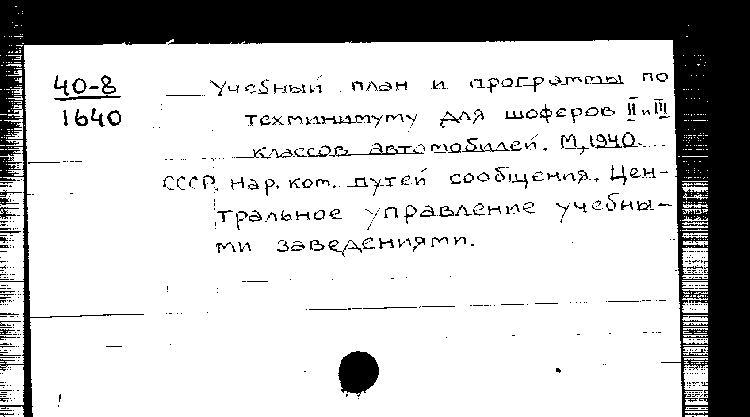 40-8
1640
Учебный план и программы по
техминимуму для шоферов II и III
классов автомобилей. М, 1940.
СССР. Нар. ком. путей сообщения. Цен-
тральное управление учебны-
ми заведениями.